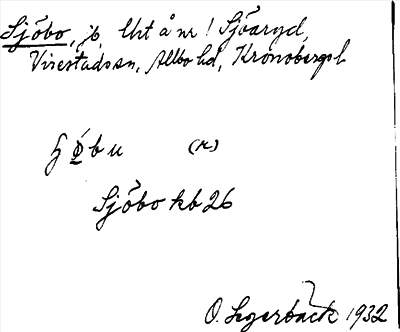 Sjöbo, jb lht å nr 1 Sjöaryd,
Virestads sn, Allbo hd, Kronobergs l
bu (n)
Sjöbo kb 26
O. Segerbäck 1932